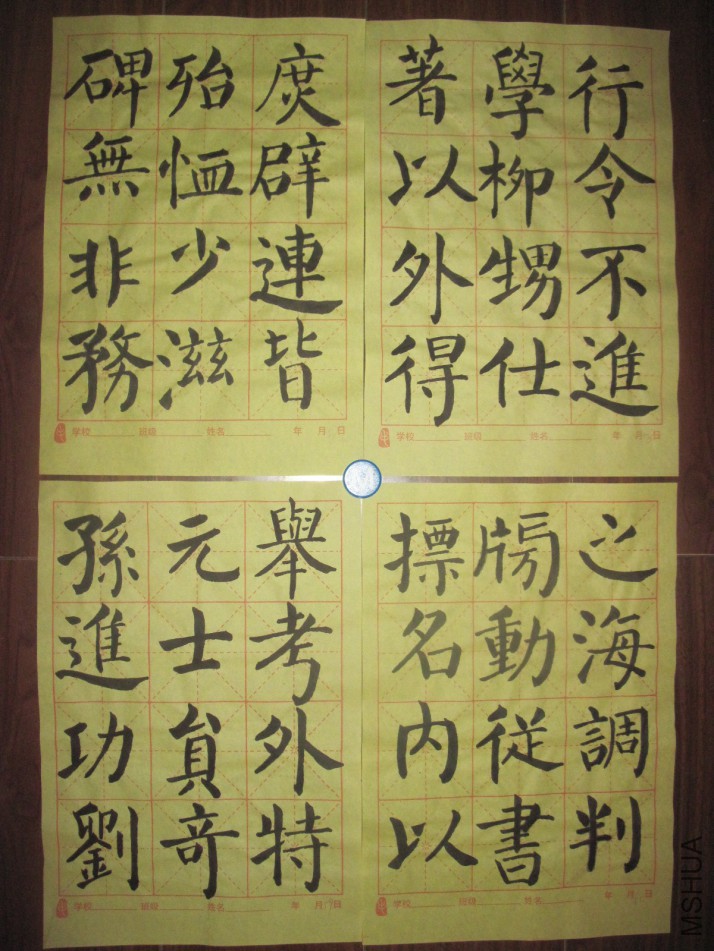 行令不進
學柳甥仕
著以外得
学校 班级 姓名 年 月 日
庶辟連皆
殆恤少滋
碑無非務
学校 班级 姓名 年 月 日
之海調判
牓動從書
摽名内以
学校 班级 姓名 年 月 日
舉考外特
元士員奇
孫進功劉
学校 班级 姓名 年 月 日
MSHUA